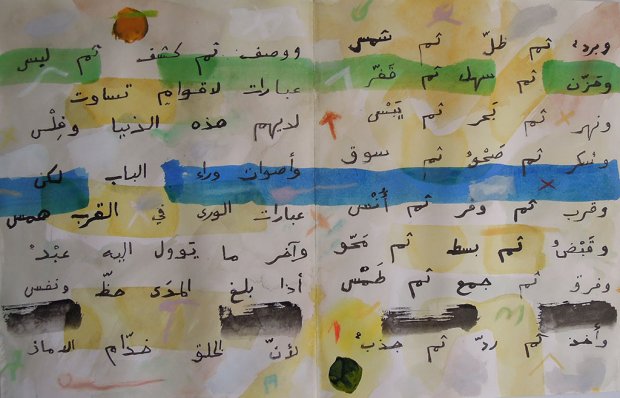 وبردٌ ثم ظلّ ثم شمس
وحَزْن ثم سهل ثم قفر
ونهر ثم بحر ثم يَبْس
وسكر ثم صَحْوٌ ثم سوق
وقرب ثم وفر ثم أُنْس
وقَبْضٌ ثم بسط ثم مَحْو
وفرق ثم جمع ثم طَمْس
وأخذ ثم ردّ ثم جذبٌ
ووصف ثم كشف ثم لبس
عبارات لاقوام تساوت
لديهم هذه الدنيا وفِلْس
وأصوات وراء الباب لكن
عبارات الورى في القرب همس
وآخر ما يؤول اليه عبْدٌ
أذا بلغ المدَى حظّ ونفس
لأنّ الخلق خدّام